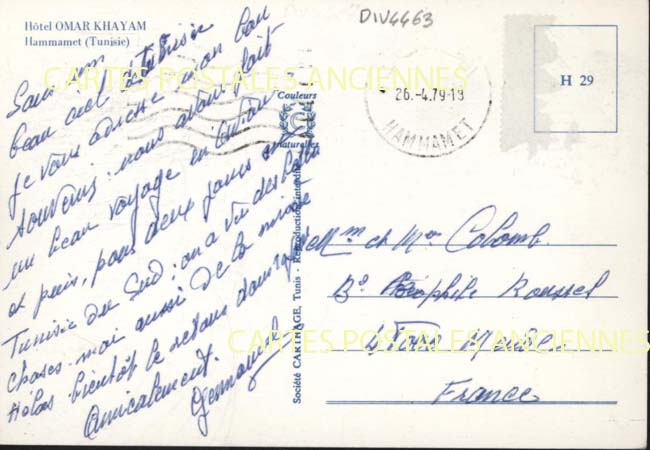 Hôtel OMAR KHAYAM
Hammamet (Tunisie)
DIV4463
H 29
26.-4.79-18
HAMMAMET
CARTES POSTALES ANCIENNES
Couleurs
naturelles
Sous un
beau ciel de Tunisie
je vous adresse mon bon
souvenir : nous avons fait
un beau voyage en avion
et puis, pendant deux jours
Tunisie du Sud : on a vu des belles
choses mai aussi de la misère
Hélas bientôt le retour dans
Amicalement.
Germaine
Société CARTHAGE, Tunis - Reproduction interdite
Mme et Mr Colomb
Bd Théophile Roussel
48000 Mende
France
CARTES POSTALES ANCIENNES